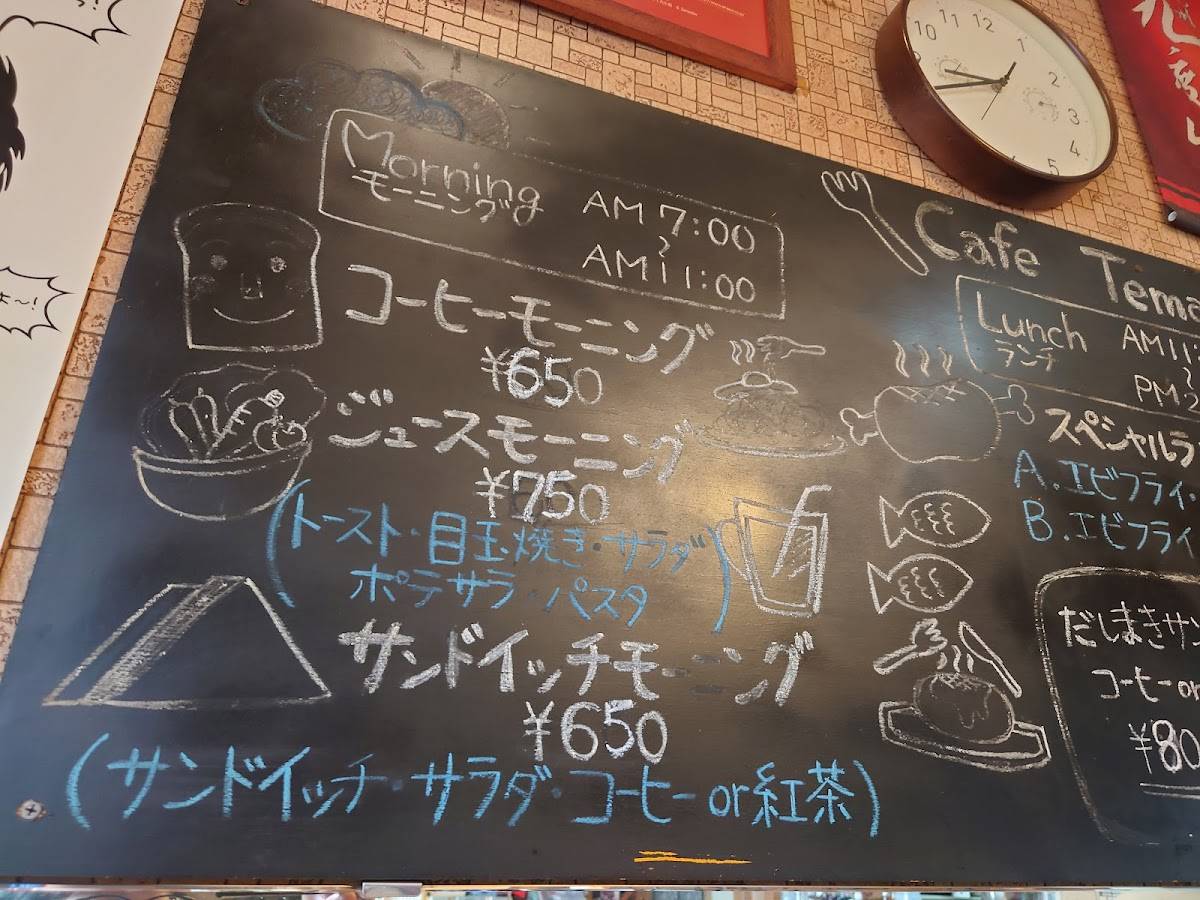 Morning
モーニング
AM 7:00
〜
AM 11:00
コーヒーモーニング
¥650
ジュースモーニング
¥750
(トースト・目玉焼き・サラダ
ポテサラ・パスタ)
サンドイッチモーニング
¥650
(サンドイッチ・サラダ・コーヒー or 紅茶)
Cafe Tema
Lunch
ランチ
AM 11:
〜
PM 2
スペシャルラ
A.エビフライ・
B.エビフライ
だしまきサン
コーヒー or
¥80
10 11 12 1 2 3 4 5